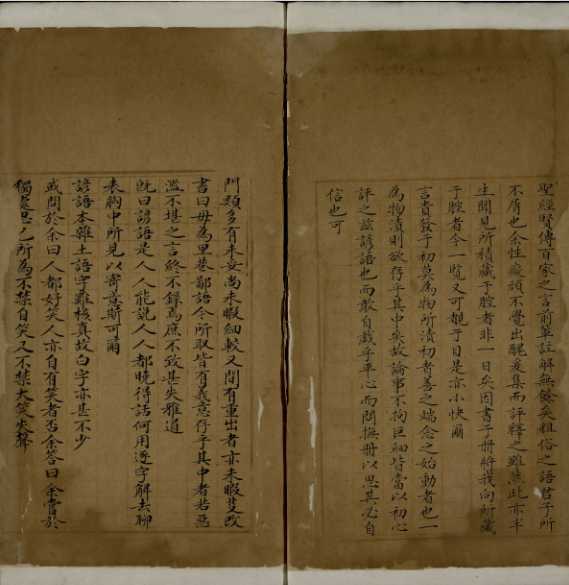 聖經賢傳百家之言前輩註解無餘矣粗俗之語君子所
不屑也余性癡頑不覺出醜爰集而評釋之雖然此亦半
生聞見所積藏于腔者非一日矣因書于冊將我向所藏
于腔者今一覽又可覩于目是亦小快爾
言貴發于初莫為物所漬初者善之端念之始動者也一
為物漬則欲存乎其中矣故論事不拘巨細皆當以初心
評之茲諺語也而敢自戲乎平心而閱撫冊以思其必自
信也可
門類多有未妥尚未暇細較又間有重出者亦未暇更改
書曰毋為里巷鄙語今所取皆有義意存乎其中者若惡
濫不堪之言終不錄焉庶不致甚失雅道
既曰諺語是人人能說人人都曉得話何用逐字解去聊
表胸中所見以寄意斯可爾
諺語本雜土語字難核真故白字亦甚不少
或問於余曰人都好笑人亦自有笑者否余答曰余嘗於
獨處思己所為不禁自笑又不禁大笑失聲